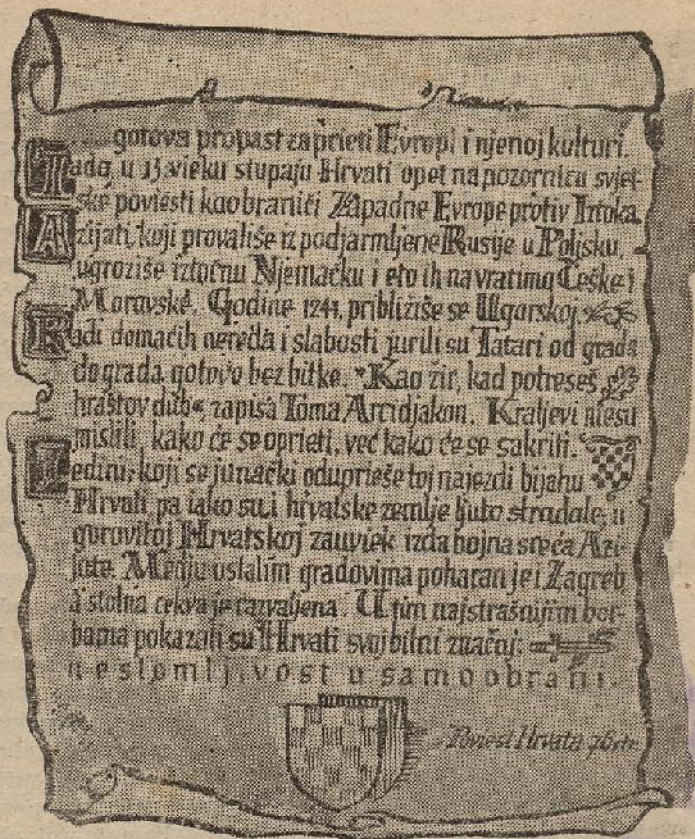 .... gotova propast zaprieti Evropi i njenoj kulturi.
Tada, u 13 vieku stupaju Hrvati opet na pozornicu svjet-
ske poviesti kao branići Zapadne Evrope protiv Istoka.
Azijati, koji provališe iz podjarmljene Rusije u Poljsku,
ugroziše iztočnu Njemačku i eto ih na vratima Češke i
Moravske. Godine 1241. približiše se Ugarskoj.
Radi domaćih nereda i slabosti jurili su Tatari od grada
do grada gotovo bez bitke. "Kao žir, kad potreseš
hrastov dub", zapisa Toma Arcidjakon. Kraljevi niesu
mislili, kako će se oprieti, već kako će se sakriti.
Jedini, koji se junački oduprieše toj najezdi bijahu
Hrvati pa iako su i hrvatske zemlje ljuto stradale, u
gorovitoj Hrvatskoj zauviek izda bojna sreća Azi-
jate. Medju ostalim gradovima poharan je i Zagreb
a stolna crkva je razvaljena. U tim najstrašnijim bor-
bama pokazali su Hrvati svoj bitni značaj:
neslomljivost u samoobrani.
Poviest Hrvata 76 str.